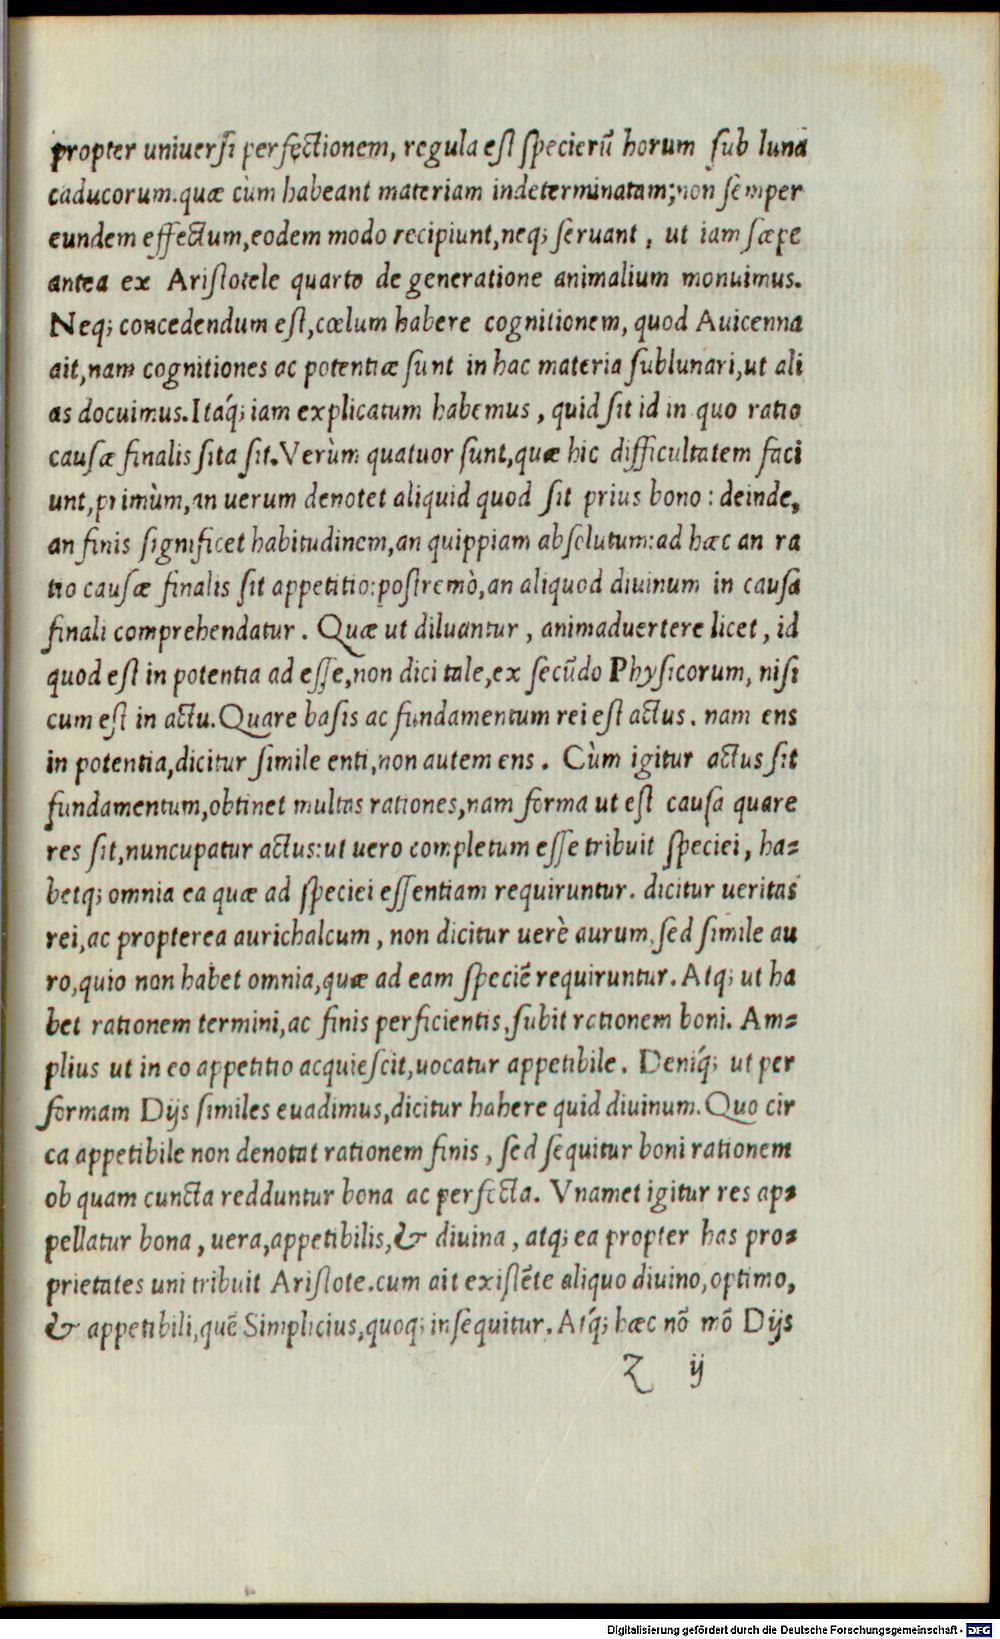 propter uniuersi perfectionem, regula est specierū horum sub luna
caducorum. quæ cùm habeant materiam indeterminatam; non semper
eundem effectum, eodem modo recipiunt, neq; seruant, ut iam sæpe
antea ex Aristotele quarto de generatione animalium monuimus.
Neq; concedendum est, cœlum habere cognitionem, quod Auicenna
ait, nam cognitiones ac potentiæ sunt in hac materia sublunari, ut ali
as docuimus. Itáq; iam explicatum habemus, quid sit id in quo ratio
causæ finalis sita sit. Verùm quatuor sunt, quæ hic difficultatem faci
unt, primùm, an uerum denotet aliquid quod sit prius bono: deinde,
an finis significet habitudinem, an quippiam absolutum: ad hæc an ra
tio causæ finalis sit appetitio: postremò, an aliquod diuinum in causa
finali comprehendatur. Quæ ut diluantur, animaduertere licet, id
quod est in potentia ad esse, non dici tale, ex secūdo Physicorum, nisi
cum est in actu. Quare basis ac fundamentum rei est actus. nam ens
in potentia, dicitur simile enti, non autem ens. Cùm igitur actus sit
fundamentum, obtinet multas rationes, nam forma ut est causa quare
res sit, nuncupatur actus: ut uero completum esse tribuit speciei, ha=
betq; omnia ea quæ ad speciei essentiam requiruntur. dicitur ueritas
rei, ac propterea aurichalcum, non dicitur uerè aurum, sed simile au
ro, quio non habet omnia, quæ ad eam speciē requiruntur. Atq; ut ha
bet rationem termini, ac finis perficientis, subit rationem boni. Am=
plius ut in eo appetitio acquiescit, uocatur appetibile. Deniq́; ut per
formam Dijs similes euadimus, dicitur habere quid diuinum. Quo cir
ca appetibile non denotat rationem finis, sed sequitur boni rationem
ob quam cuncta redduntur bona ac perfecta. Vnamet igitur res ap=
pellatur bona, uera, appetibilis, & diuina, atq; ea propter has pro=
prietates uni tribuit Aristote. cum ait existēte aliquo diuino, optimo,
& appetibili, quē Simplicius, quoq; insequitur. Atq́; hæc nō mō Dijs
Z ij
Digitalisierung gefördert durch die Deutsche Forschungsgemeinschaft - DFG